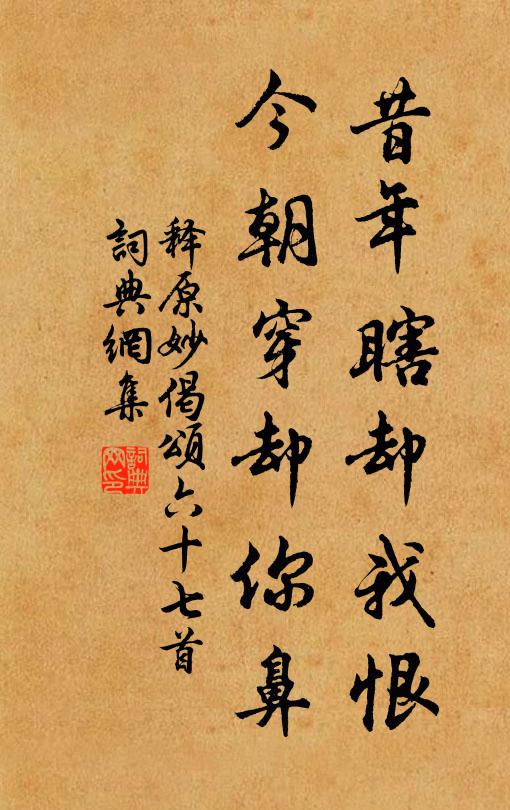 昔年瞎却我恨
今朝穿却你鼻
释原妙偈頌六十七首
詞典網集
詞典网印